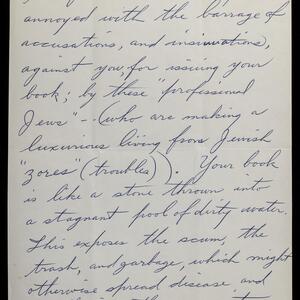 annoyed with the barrage of
accusations, and insinuations,
against you, for issuing your
book; by these "professional
Jews" -- (who are making a
luxurious living from Jewish
"zores" (troubles)). Your book
is like a stone thrown into
a stagnant pool of dirty water.
This exposes the scum, the
trash, and garbage, which might
otherwise spread disease and